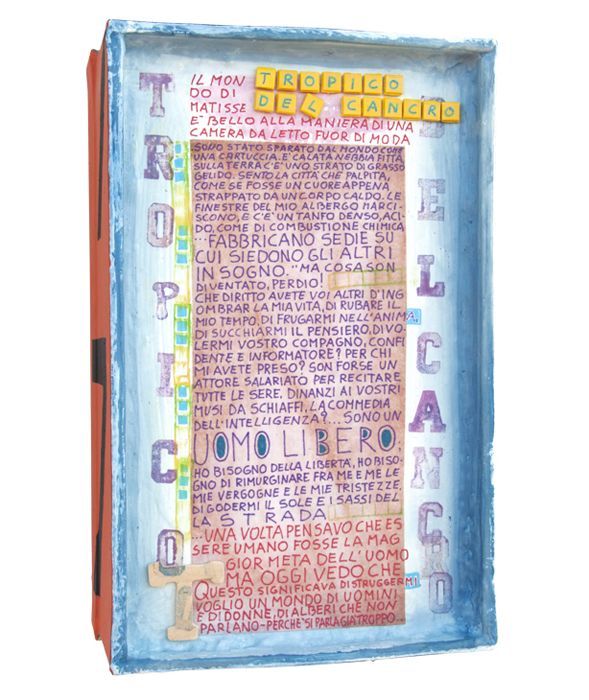 TROPICO
DEL CANCRO
IL MON
DO DI
MATISSE
E' BELLO ALLA MANIERA DI UNA
CAMERA DA LETTO FUOR DI MODA
SONO STATO SPARATO DAL MONDO COME
UNA CARTUCCIA. E' CALATA NEBBIA FITTA,
SULLA TERRA C'E' UNO STRATO DI GRASSO
GELIDO. SENTO LA CITTA' CHE PALPITA,
COME SE FOSSE UN CUORE APPENA
STRAPPATO DA UN CORPO CALDO. LE
FINESTRE DEL MIO ALBERGO MARCI-
SCONO, E C'E' UN TANFO DENSO, ACI-
DO, COME DI COMBUSTIONE CHIMICA
...FABBRICANO SEDIE SU
CUI SIEDONO GLI ALTRI
IN SOGNO..." MA COSA SON
DIVENTATO, PERDIO!
CHE DIRITTO AVETE VOI ALTRI D'ING
OMBRAR LA MIA VITA, DI RUBARE IL
MIO TEMPO, DI FRUGARMI NELL'ANIMA
DI SUCCHIARMI IL PENSIERO, DI VO-
LERMI VOSTRO COMPAGNO, CONFI
DENTE E INFORMATORE? PER CHI
MI AVETE PRESO? SON FORSE UN
ATTORE SALARIATO PER RECITARE
TUTTE LE SERE, DINANZI AI VOSTRI
MUSI DA SCHIAFFI, LA COMMEDIA
DELL'INTELLIGENZA?... SONO UN
UOMO LIBERO.
HO BISOGNO DELLA LIBERTA', HO BISO-
GNO DI RIMURGINARE FRA ME E ME LE
MIE VERGOGNE E LE MIE TRISTEZZE,
DI GODERMI IL SOLE E I SASSI DEL
LA STRADA
...UNA VOLTA PENSAVO CHE ES
SERE UMANO FOSSE LA MAG
GIOR META DELL'UOMO
MA OGGI VEDO CHE
QUESTO SIGNIFICAVA DISTRUGGERMI
VOGLIO UN MONDO DI UOMINI
E DI DONNE, DI ALBERI CHE NON
PARLANO-PERCHE' SI PARLA GIA TROPPO...
TROPICO
DEL CANCRO
T